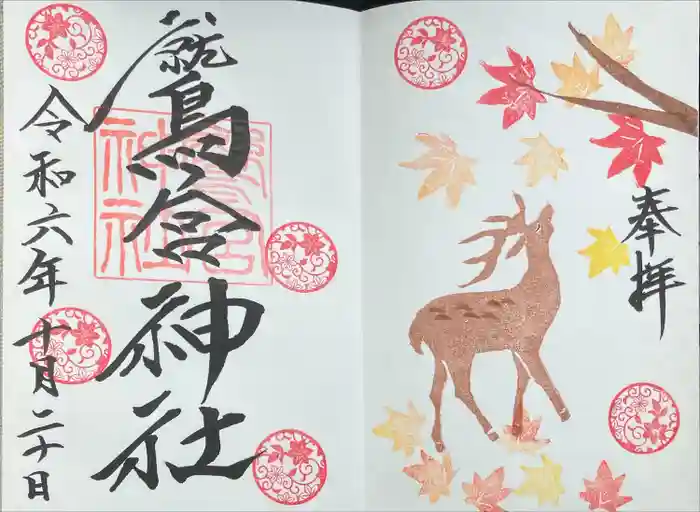 奉拝
鷲宮神社
鷲宮
神社
令和六年十月二十日